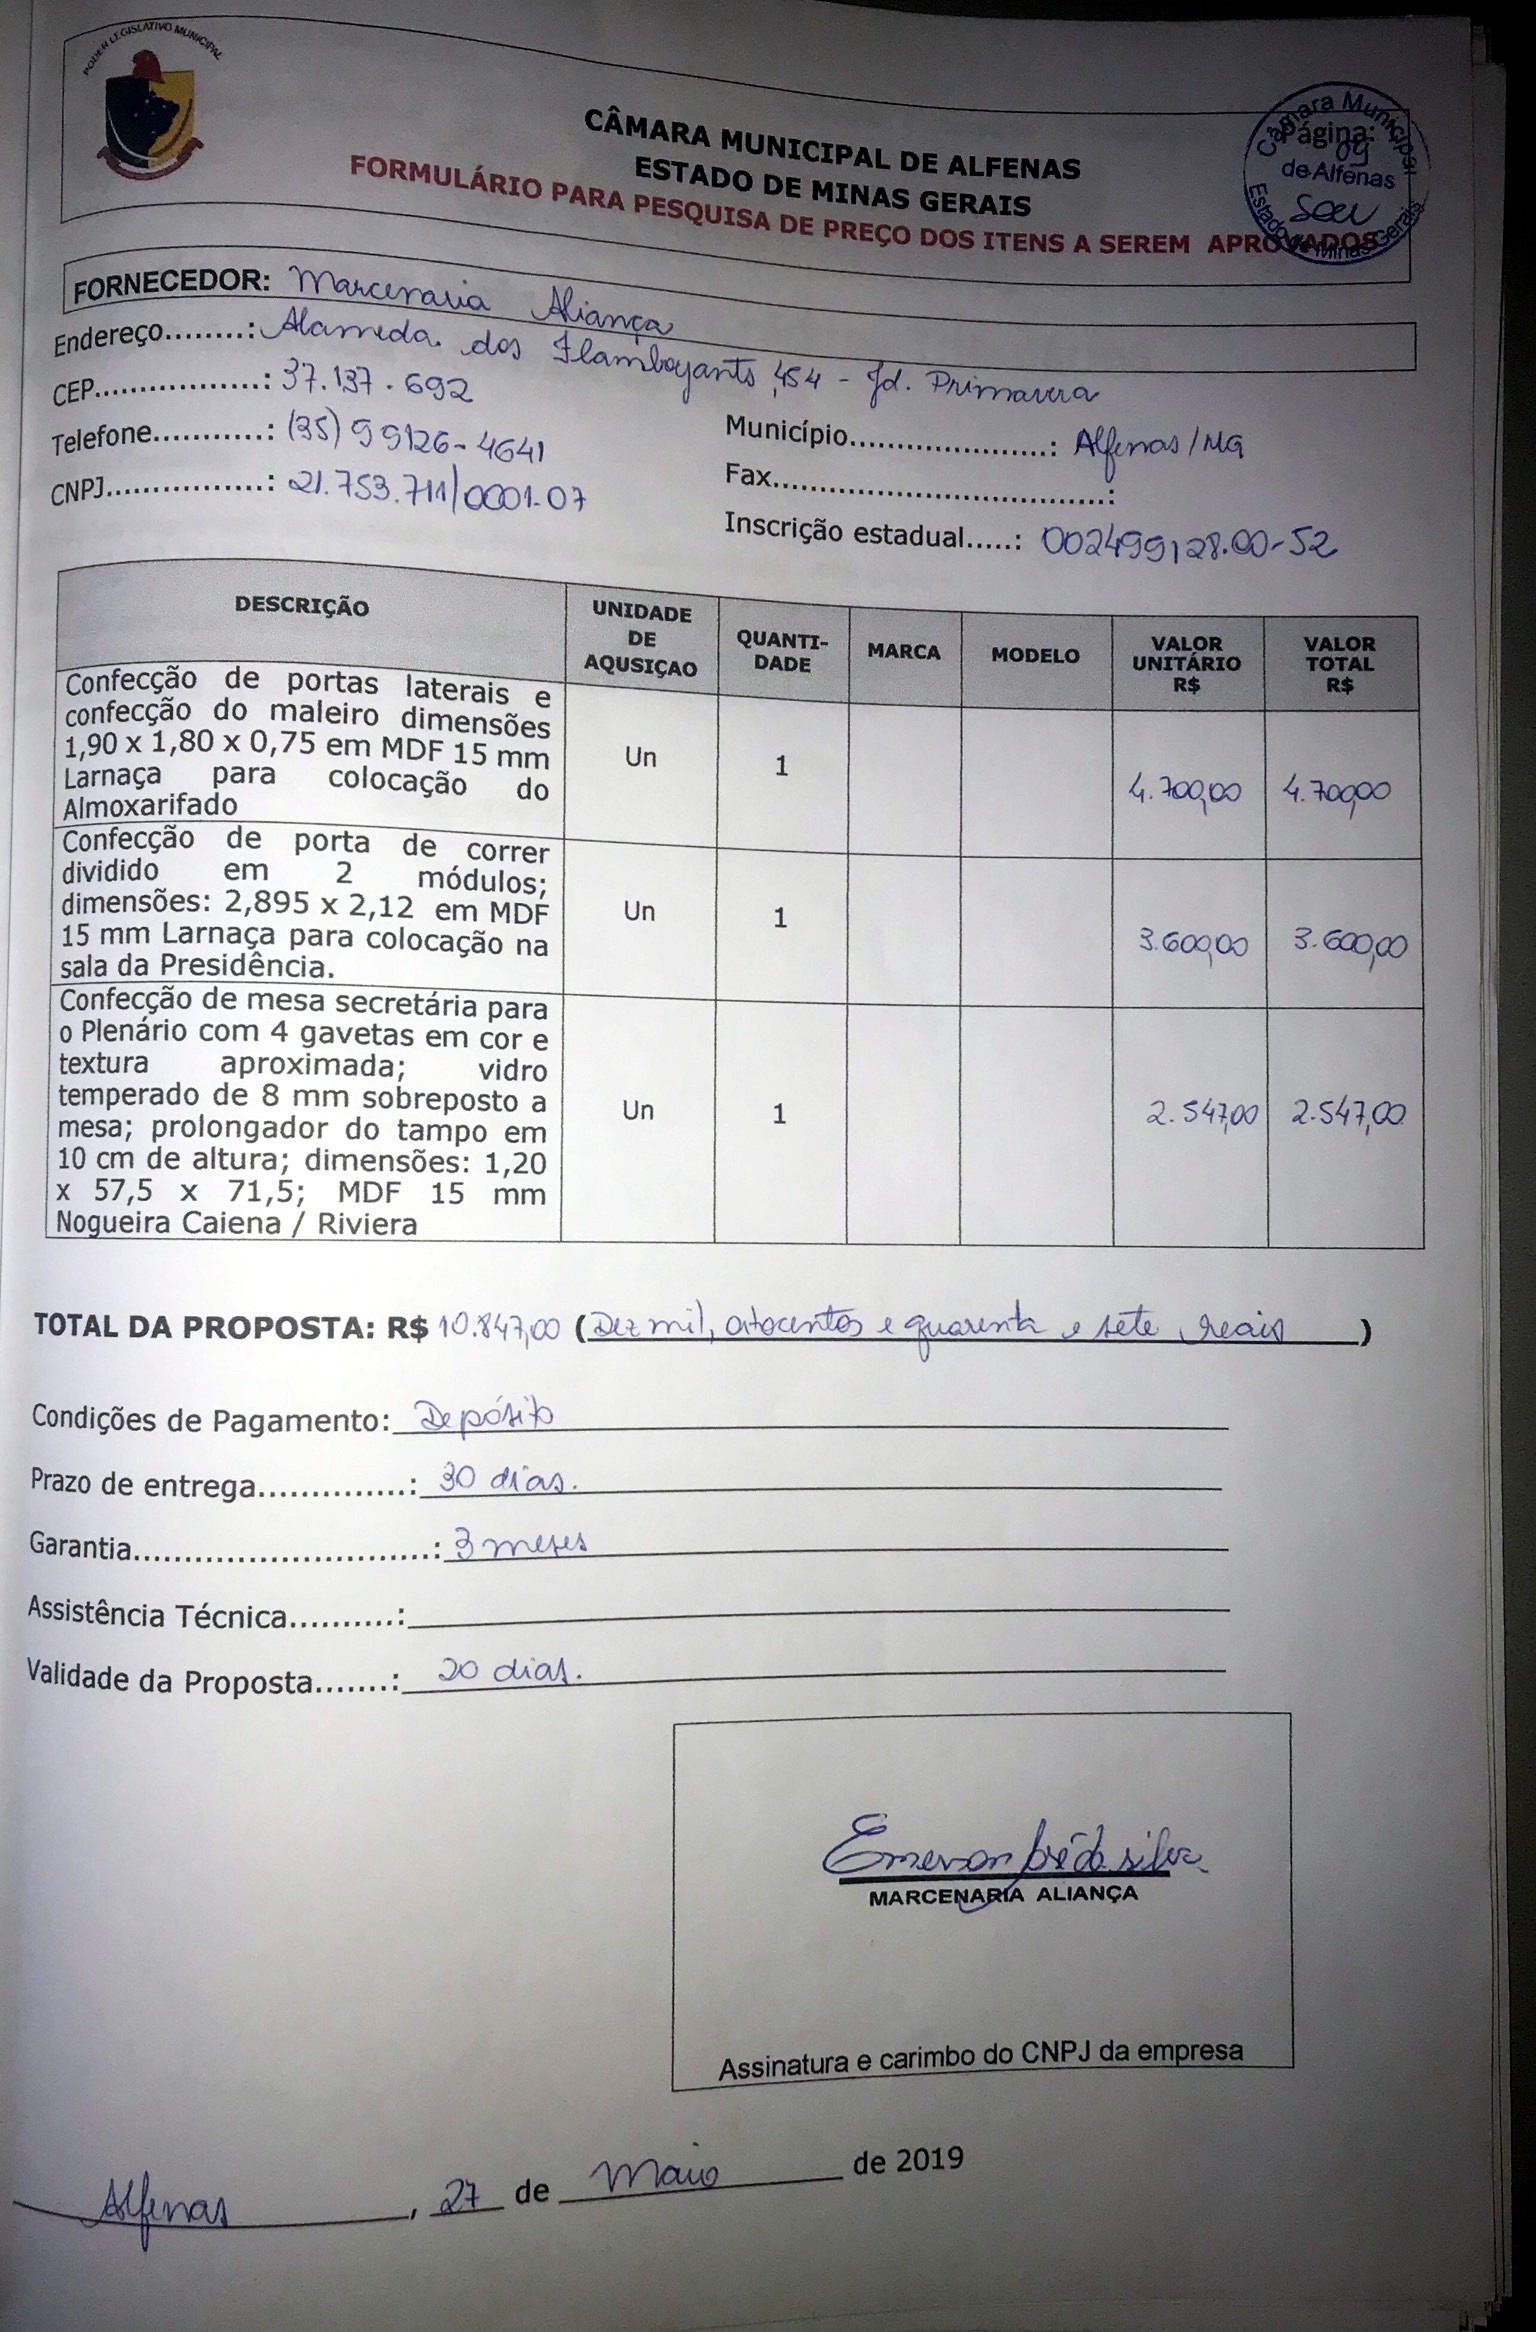 PODER LEGISLATIVO MUNICIPAL
CÂMARA MUNICIPAL DE ALFENAS
ESTADO DE MINAS GERAIS
FORMULÁRIO PARA PESQUISA DE PREÇO DOS ITENS A SEREM APROVADOS
Câmara Municipal
Página:
09
de Alfenas
Estado de Minas Gerais
FORNECEDOR: Marcenaria Aliança
Endereço........: Alameda dos Flamboyants, 454 - Jd. Primavera
CEP.................: 37.137.692
Telefone...........: (35) 99126-4641
Município.....................: Alfenas/MG
CNPJ................: 21.753.711/0001-07
Fax...................................:
Inscrição estadual.....: 002499128.00-52
DESCRIÇÃO
UNIDADE
DE
AQUSIÇAO
QUANTI-
DADE
MARCA
MODELO
VALOR
UNITÁRIO
R$
VALOR
TOTAL
R$
Confecção de portas laterais e
confecção do maleiro dimensões
1,90 x 1,80 x 0,75 em MDF 15 mm
Larnaça para colocação do
Almoxarifado
Un
1
4.700,00
4.700,00
Confecção de porta de correr
dividido em 2 módulos;
dimensões: 2,895 x 2,12 em MDF
15 mm Larnaça para colocação na
sala da Presidência.
Un
1
3.600,00
3.600,00
Confecção de mesa secretária para
o Plenário com 4 gavetas em cor e
textura aproximada; vidro
temperado de 8 mm sobreposto a
mesa; prolongador do tampo em
10 cm de altura; dimensões: 1,20
x 57,5 x 71,5; MDF 15 mm
Nogueira Caiena / Riviera
Un
1
2.547,00
2.547,00
TOTAL DA PROPOSTA: R$ 10.847,00 (Dez mil, oitocentos e quarenta e sete reais)
Condições de Pagamento: Depósito
Prazo de entrega..............: 30 dias.
Garantia............................: 3 meses
Assistência Técnica..........:
Validade da Proposta.......: 20 dias.
Emerson José da silva
MARCENARIA ALIANÇA
Assinatura e carimbo do CNPJ da empresa
Alfenas, 27 de Maio de 2019